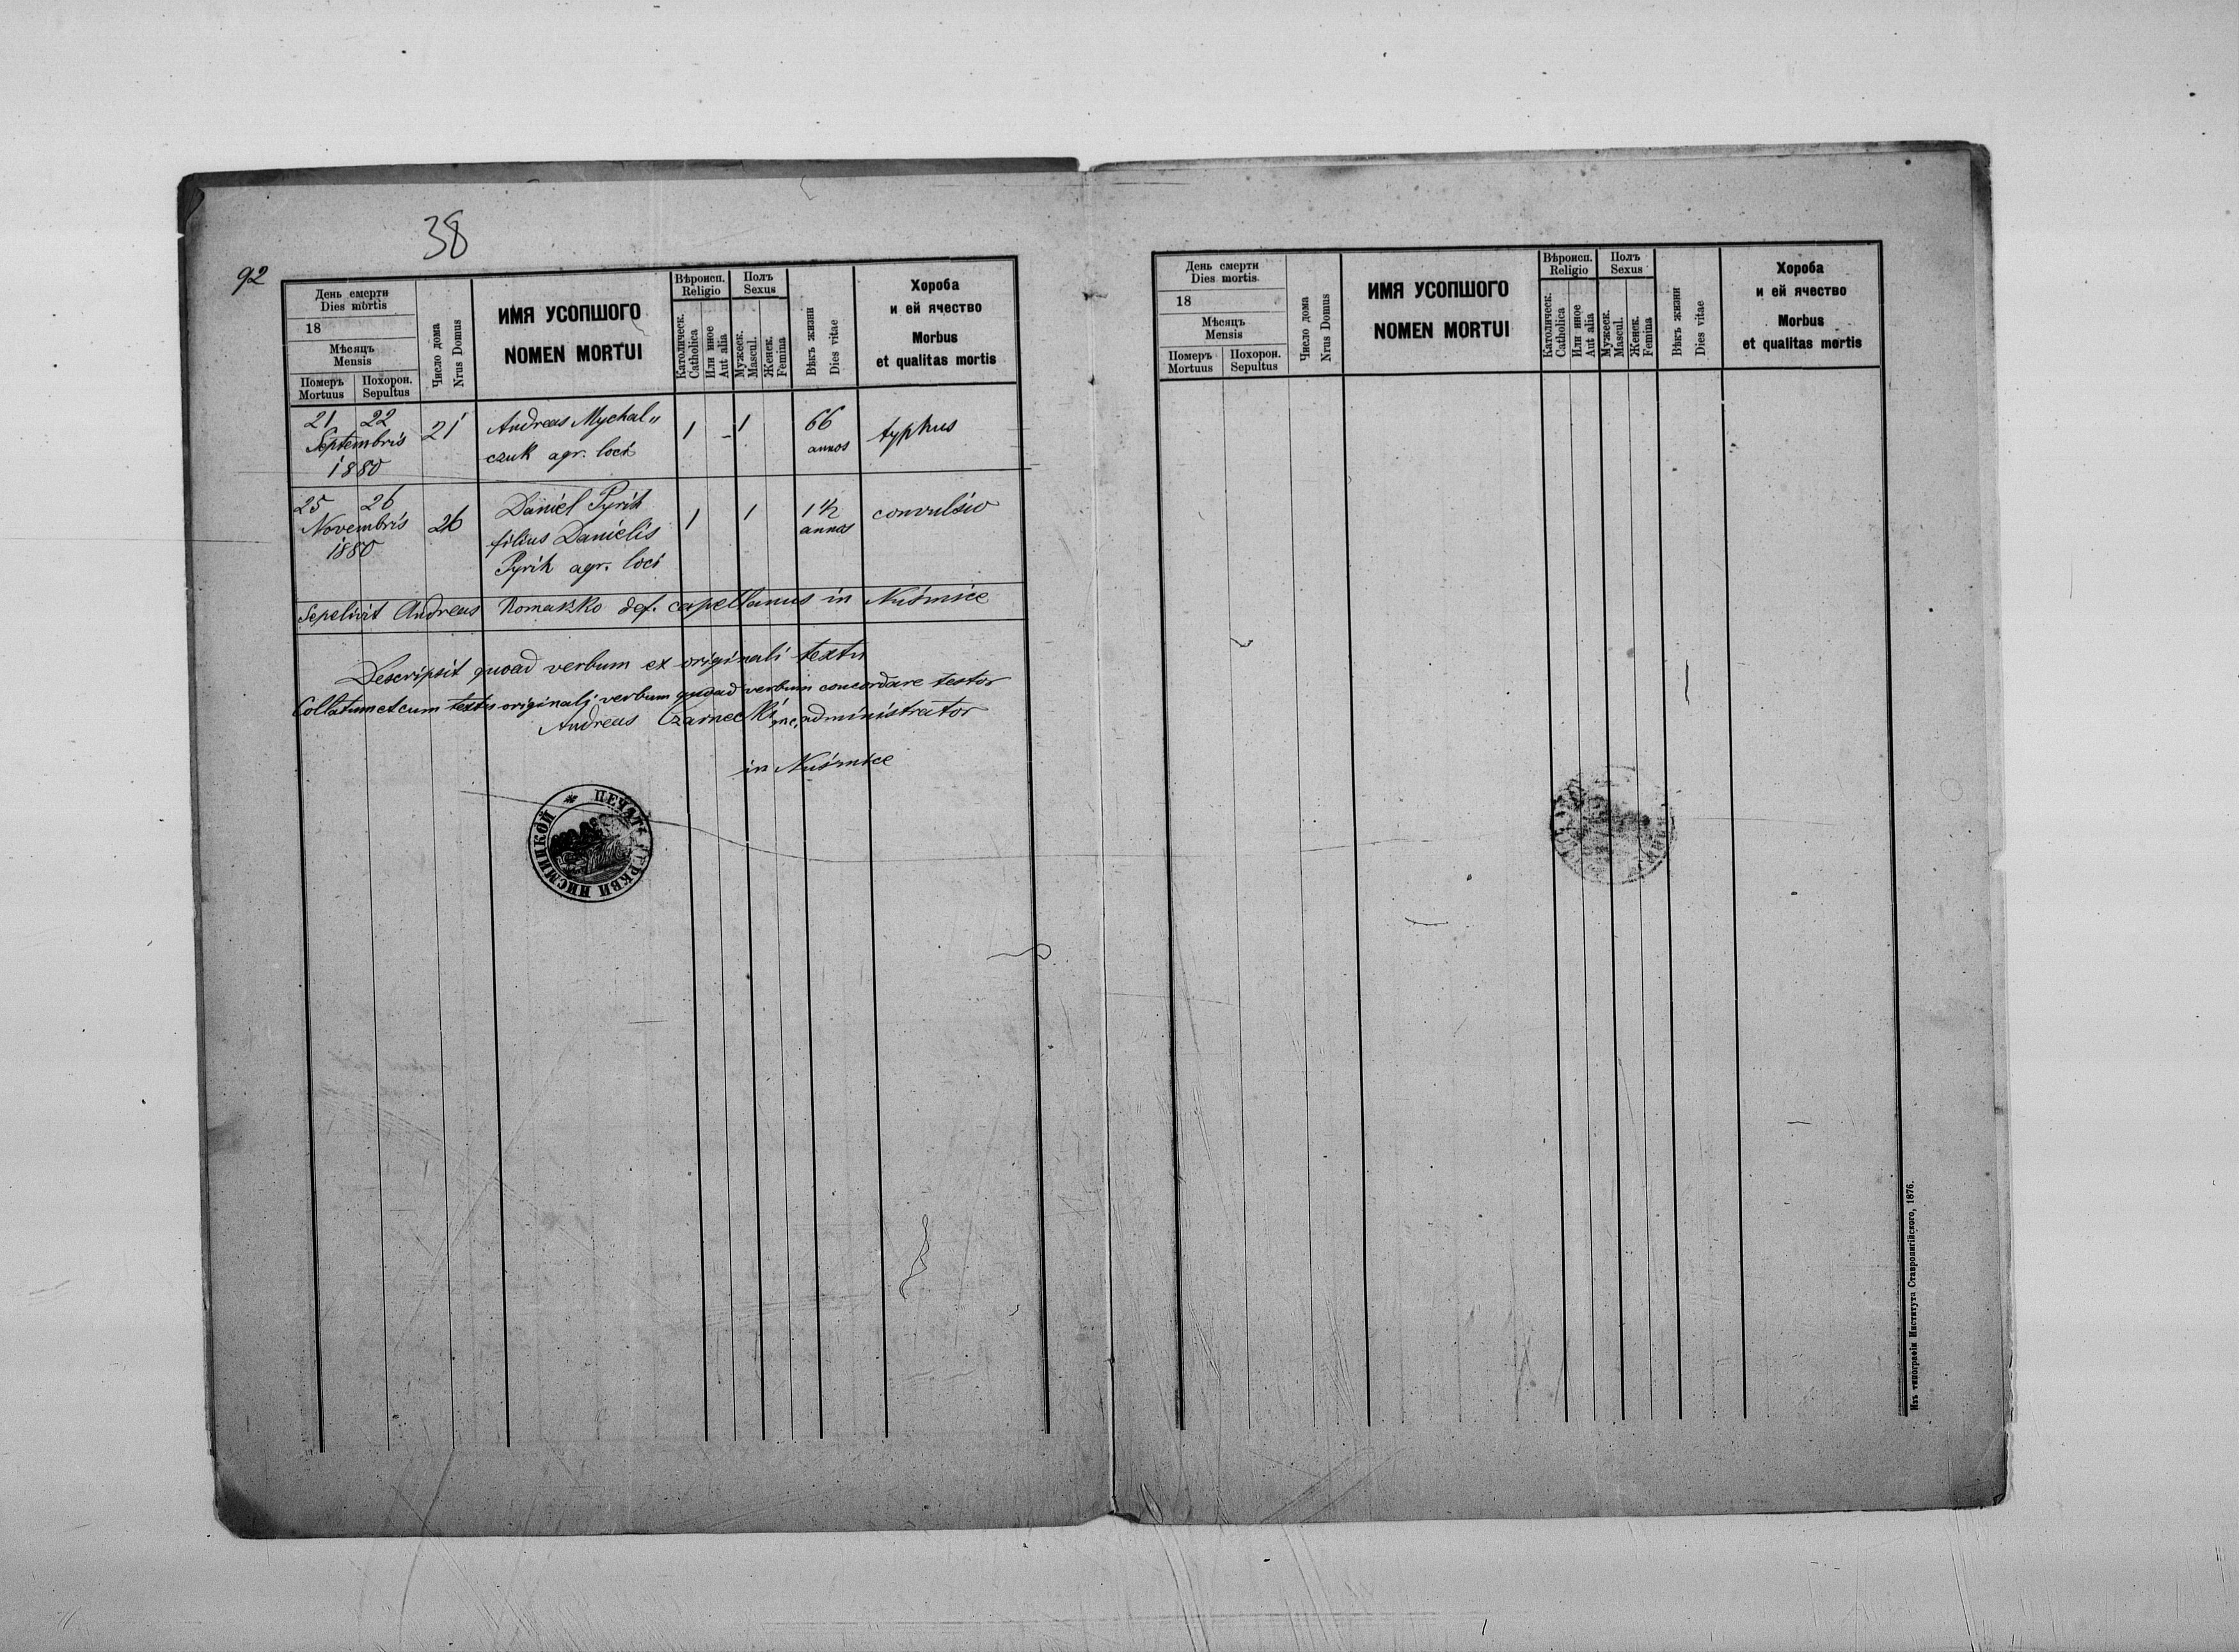 38
92
День смерти
Dies mortis
18
Мѣсяцъ
Mensis
Померъ Похорон.
Mortuus Sepultus
Число дома
Nrus Domus
ИМЯ УСОПШОГО
NOMEN MORTUI
Вѣроисп.
Religio
Католическ.
Catholica
Или иное
Aut alia
Полъ
Sexus
Мужеск.
Mascul.
Женск.
Femina
Вѣкъ жизни
Dies vitae
Хороба
и ей ячество
Morbus
et qualitas mortis
21 22 21 Andreas Mychal„ 1 - 1 66 typhus
Septembris czuk agr. loci annos
1880
25 26 26 Daniel Pyrih 1 1 1 1/2 convulsio
Novembris filius Danielis annos
1880 Pyrih agr. loci
Sepelivit Andreas Romaszko def. capellanus in Nuśmice
Descripsit quoad verbum ex originali textu
Collatum et cum textu originali verbum quoad verbum concordare testor
Andreas Czarnecki administrator
in Nuśmice
* ПЕЧАТЬ ЦЕРКВИ НИСМИЦКОЙ
День смерти
Dies mortis
18
Мѣсяцъ
Mensis
Померъ Похорон.
Mortuus Sepultus
Число дома
Nrus Domus
ИМЯ УСОПШОГО
NOMEN MORTUI
Вѣроисп.
Religio
Католическ.
Catholica
Или иное
Aut alia
Полъ
Sexus
Мужеск.
Mascul.
Женск.
Femina
Вѣкъ жизни
Dies vitae
Хороба
и ей ячество
Morbus
et qualitas mortis
Изъ типографіи Института Ставропигійского, 1876.